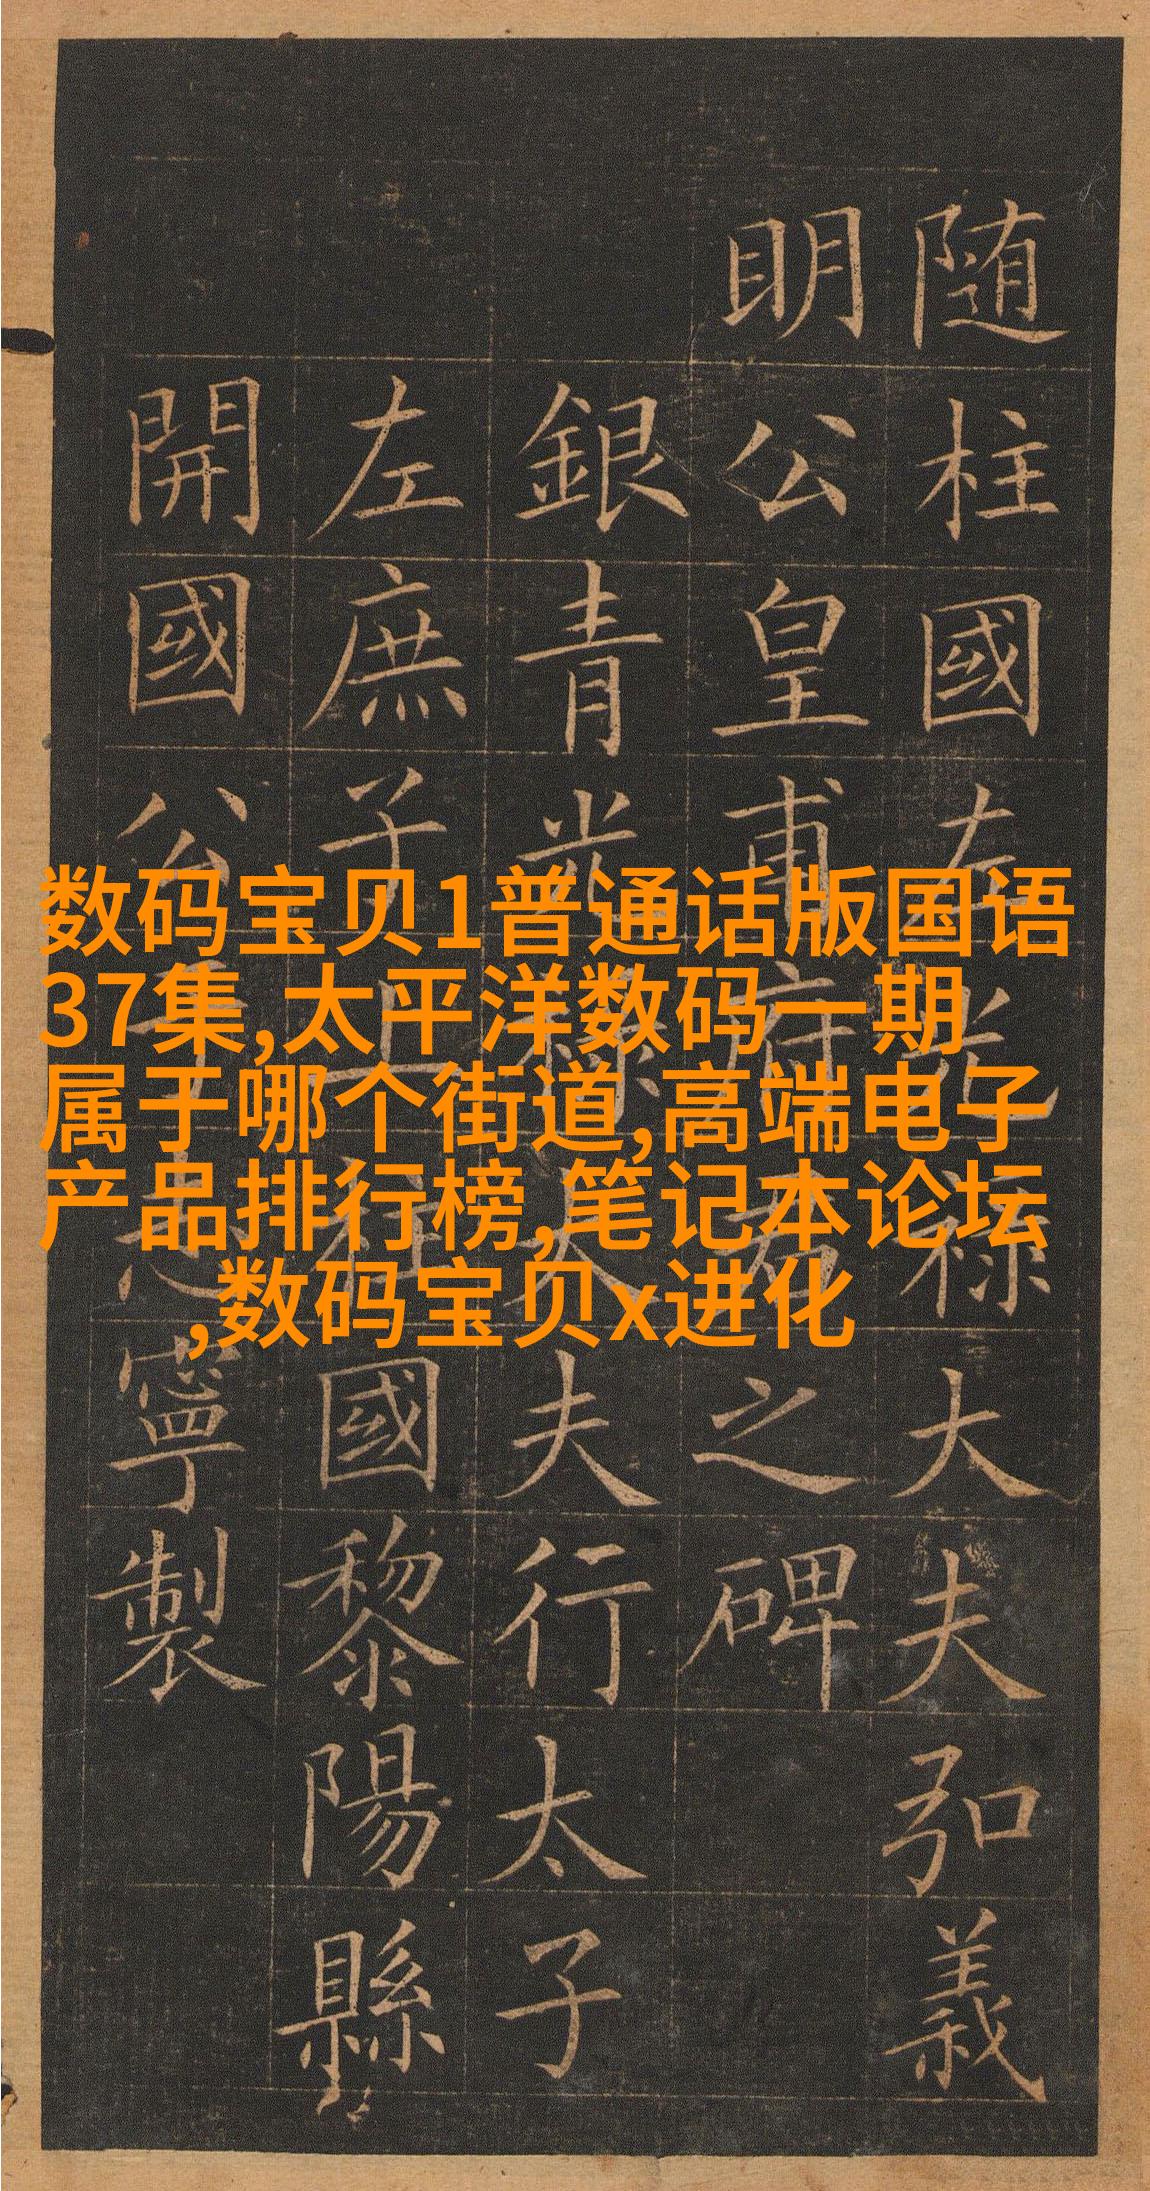 随柱國左光禄大夫弘義
明公皇甫府君之碑
銀青光禄大夫行太子
左庶子上柱國黎陽縣
開國公于志寧製
数码宝贝1普通话版国语
37集,太平洋数码一期
属于哪个街道,高端电子
产品排行榜,笔记本论坛
,数码宝贝x进化